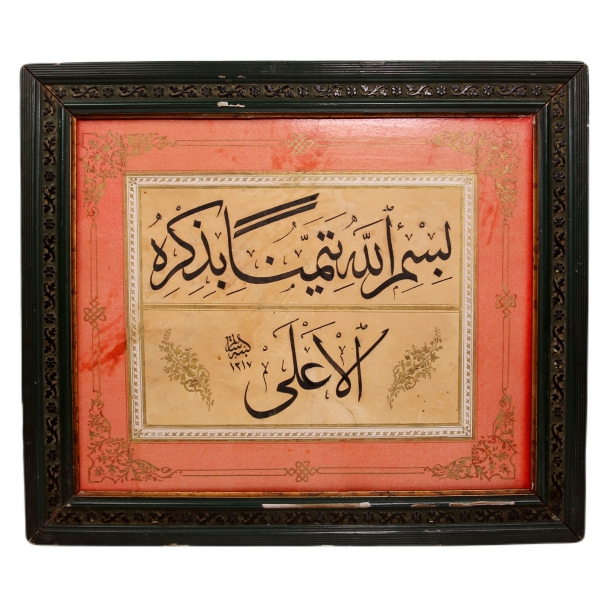 بِسْمِ اللّٰهِ تَيَمُّنًا بِذِكْرِهِ
الْأَعْلَى
كتبه
١٣١٧